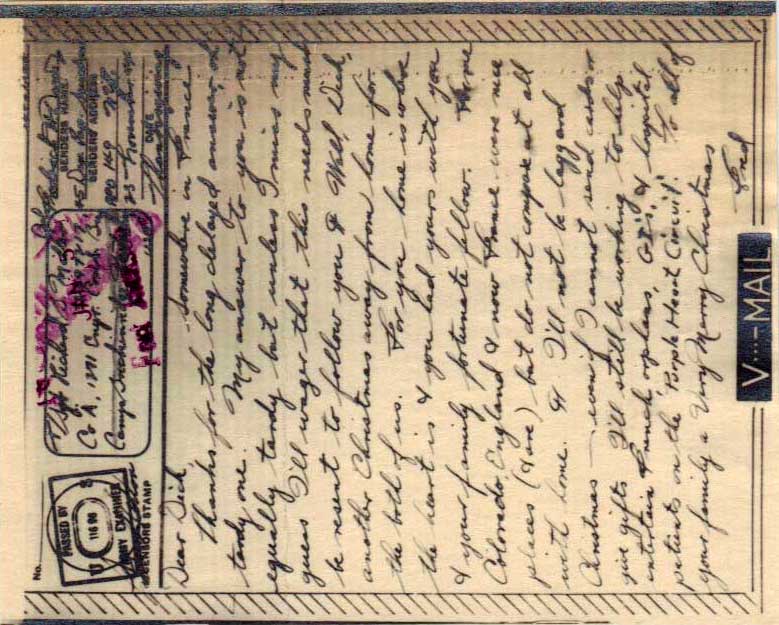 No.
PASSED BY
116 06
ARMY EXAMINER
CENSOR'S STAMP
Richard
Co A, 1291 Engr.
Camp
Free
SENDER'S NAME
SENDER'S ADDRESS
APO 169 NYC
23 November
DATE
Somewhere in France
Dear Dick,
Thanks for the long delayed answer, oh
tardy one. My answer to you is not
equally tardy but unless I miss my
guess I'll wager that this needs must
be resent to follow you & Well, Dick,
another Christmas away from home for
the both of us. For you home is where
the heart is & you had yours with you
& your family fortunate fellow. For me
Colorado, England & now France were nice
places (& are) but do not compare at all
with home. & I'll not be laggard
Christmas – even if I cannot send cards or
give gifts I'll still be working to help
entertain French orphans, G.I.'s, & hospital
patients on the "Purple Heart Circuit." To all of
your family a Very Merry Christmas
V···–MAIL